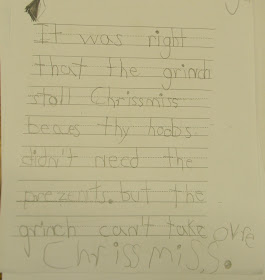 It was right
that the grinch
stoll Chrissmiss
beaces thy hoobs
didn't need the
prezents. but the
grinch can't take ovre
Chrissmiss.